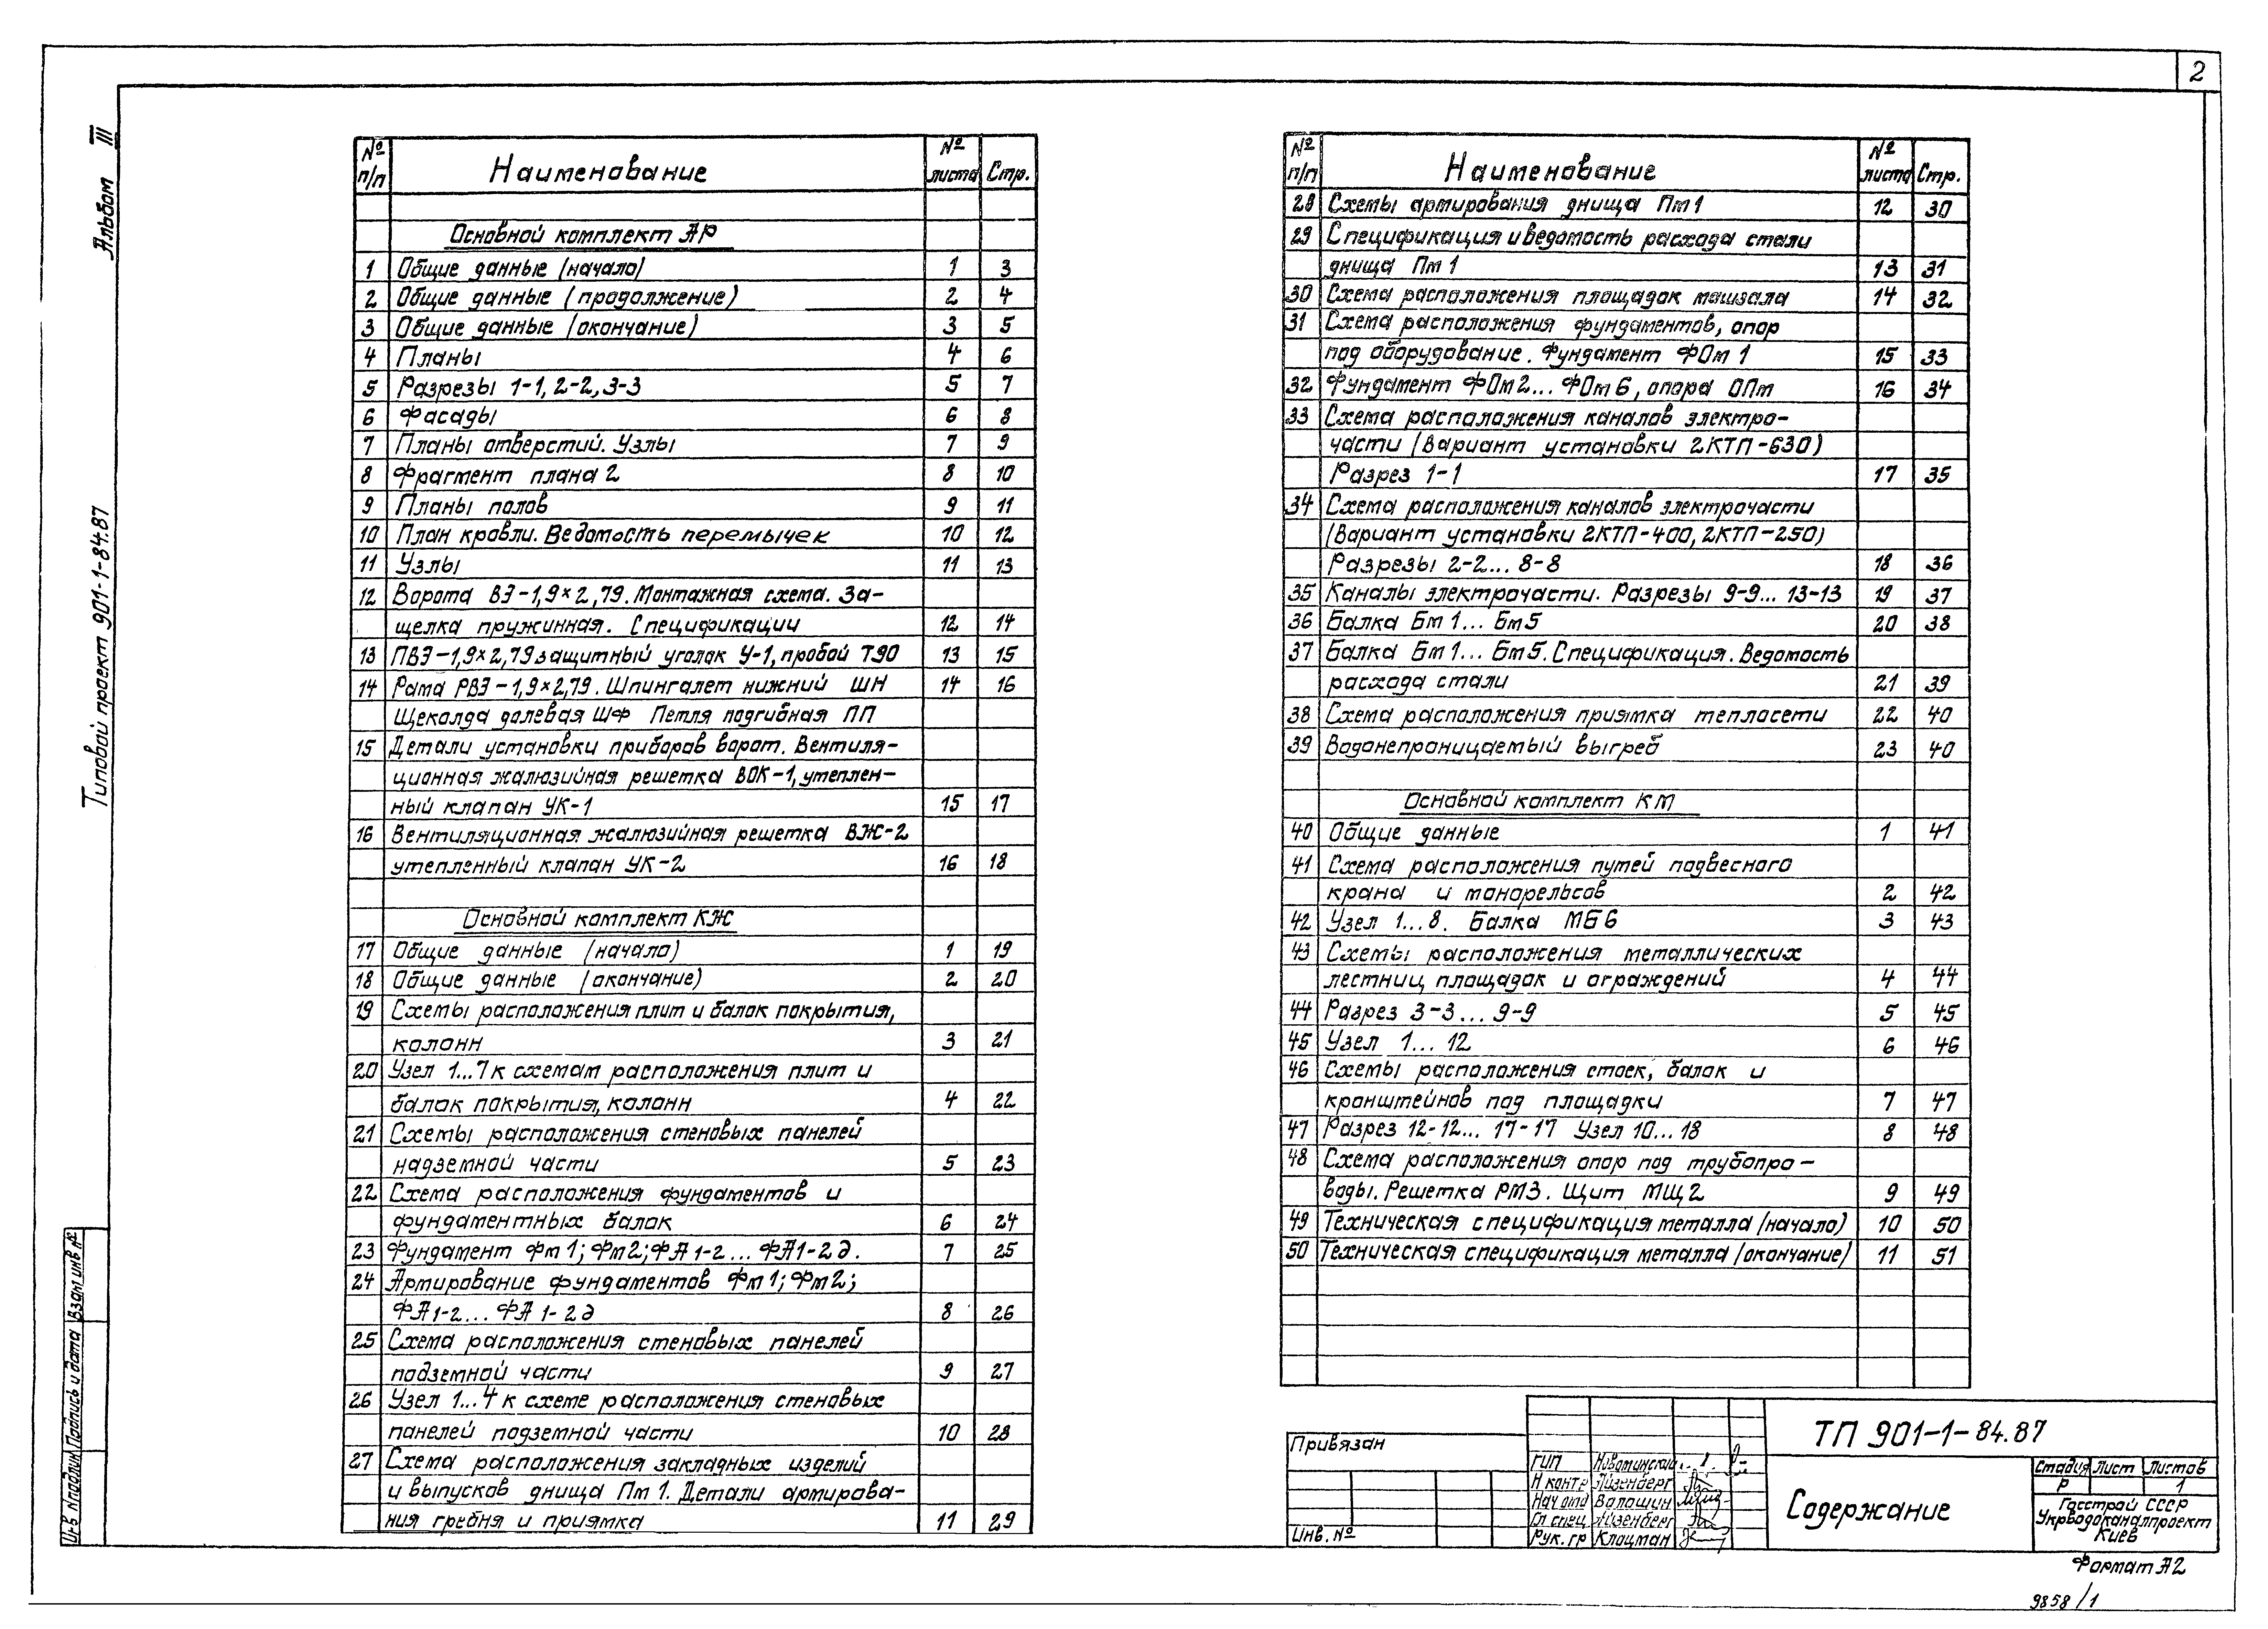 2
Альбом III
Типовой проект 901-1-84.87
№ п/п Наименование № листа Стр.
Основной комплект АР
1 Общие данные (начало) 1 3
2 Общие данные (продолжение) 2 4
3 Общие данные (окончание) 3 5
4 Планы 4 6
5 Разрезы 1-1, 2-2, 3-3 5 7
6 Фасады 6 8
7 Планы отверстий. Узлы 7 9
8 Фрагмент плана 2 8 10
9 Планы полов 9 11
10 План кровли. Ведомость перемычек 10 12
11 Узлы 11 13
12 Ворота ВЭ-1,9×2,79. Монтажная схема. За-
щелка пружинная. Спецификации 12 14
13 ПВЭ-1,9×2,79 защитный уголок У-1, пробой Т90 13 15
14 Рама РВЭ-1,9×2,79. Шпингалет нижний ШН 14 16
Щеколда долевая ШФ Петля подгибная ПП
15 Детали установки приборов ворот. Вентиля-
ционная жалюзийная решетка ВОК-1, утеплен-
ный клапан УК-1 15 17
16 Вентиляционная жалюзийная решетка ВЖ-2
утепленный клапан УК-2 16 18
Основной комплект КЖ
17 Общие данные (начало) 1 19
18 Общие данные (окончание) 2 20
19 Схемы расположения плит и балок покрытия,
колонн 3 21
20 Узел 1...7 к схемам расположения плит и
балок покрытия, колонн 4 22
21 Схемы расположения стеновых панелей
надземной части 5 23
22 Схема расположения фундаментов и
фундаментных балок 6 24
23 Фундамент Фм1; Фм2; ФА1-2...ФА1-2д. 7 25
24 Армирование фундаментов Фм1; Фм2;
ФА1-2...ФА1-2д 8 26
25 Схема расположения стеновых панелей
подземной части 9 27
26 Узел 1...4 к схеме расположения стеновых
панелей подземной части 10 28
27 Схема расположения закладных изделий
и выпусков днища Пм1. Детали армирова-
ния гребня и приямка 11 29
№ п/п Наименование № листа Стр.
28 Схемы армирования днища Пм1 12 30
29 Спецификация и ведомость расхода стали
днища Пм1 13 31
30 Схема расположения площадок машзала 14 32
31 Схема расположения фундаментов, опор
под оборудование. Фундамент ФОм1 15 33
32 Фундамент ФОм2...ФОм6, опора ОПт 16 34
33 Схема расположения каналов электро-
части (Вариант установки 2КТП-630)
Разрез 1-1 17 35
34 Схема расположения каналов электрочасти
(Вариант установки 2КТП-400, 2КТП-250)
Разрезы 2-2...8-8 18 36
35 Каналы электрочасти. Разрезы 9-9...13-13 19 37
36 Балка Бм1...Бм5 20 38
37 Балка Бм1...Бм5. Спецификация. Ведомость
расхода стали 21 39
38 Схема расположения приямка теплосети 22 40
39 Водонепроницаемый выгреб 23 40
Основной комплект КМ
40 Общие данные 1 41
41 Схема расположения путей подвесного
крана и монорельсов 2 42
42 Узел 1...8. Балка МБ6 3 43
43 Схемы расположения металлических
лестниц площадок и ограждений 4 44
44 Разрез 3-3...9-9 5 45
45 Узел 1...12 6 46
46 Схемы расположения стоек, балок и
кронштейнов под площадки 7 47
47 Разрез 12-12...17-17 Узел 10...18 8 48
48 Схема расположения опор под трубопро-
воды. Решетка РМ3. Щит МЩ2 9 49
49 Техническая спецификация металла (начало) 10 50
50 Техническая спецификация металла (окончание) 11 51
Привязан
Инв. №
ГИП
Н контр Айзенберг
Нач отд Волошин
Гл спец Айзенберг
Рук. гр Клоцман
ТП 901-1-84.87
Содержание
Стадия Лист Листов
Р 1
Госстрой СССР
Укрводоканалпроект
Киев
Формат А2
9858/1
Взам инв №
Подпись и дата
Инв № подлин